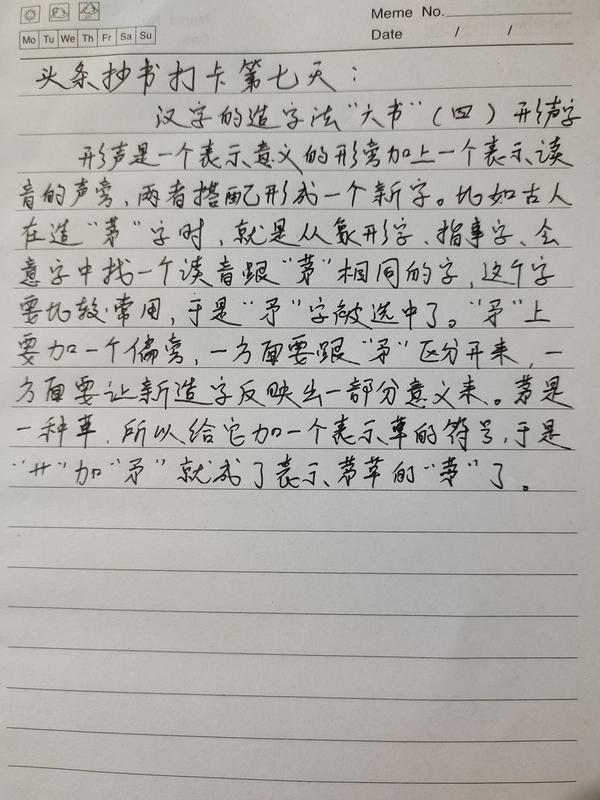 Meme No.
Mo Tu We Th Fr Sa Su
Date / /
头条抄书打卡第七天：
汉字的造字法“六书”（四）形声字
形声是一个表示意义的形旁加上一个表示读
音的声旁，两者搭配形成一个新字。比如古人
在造“茅”字时，就是从象形字、指事字、会
意字中找一个读音跟“茅”相同的字，这个字
要比较常用，于是“矛”字被选中了。“矛”上
要加一个偏旁，一方面要跟“矛”区分开来，一
方面要让新造字反映出一部分意义来。茅是
一种草，所以给它加一个表示草的符号，于是
“艹”加“矛”就成了表示茅草的“茅”了。